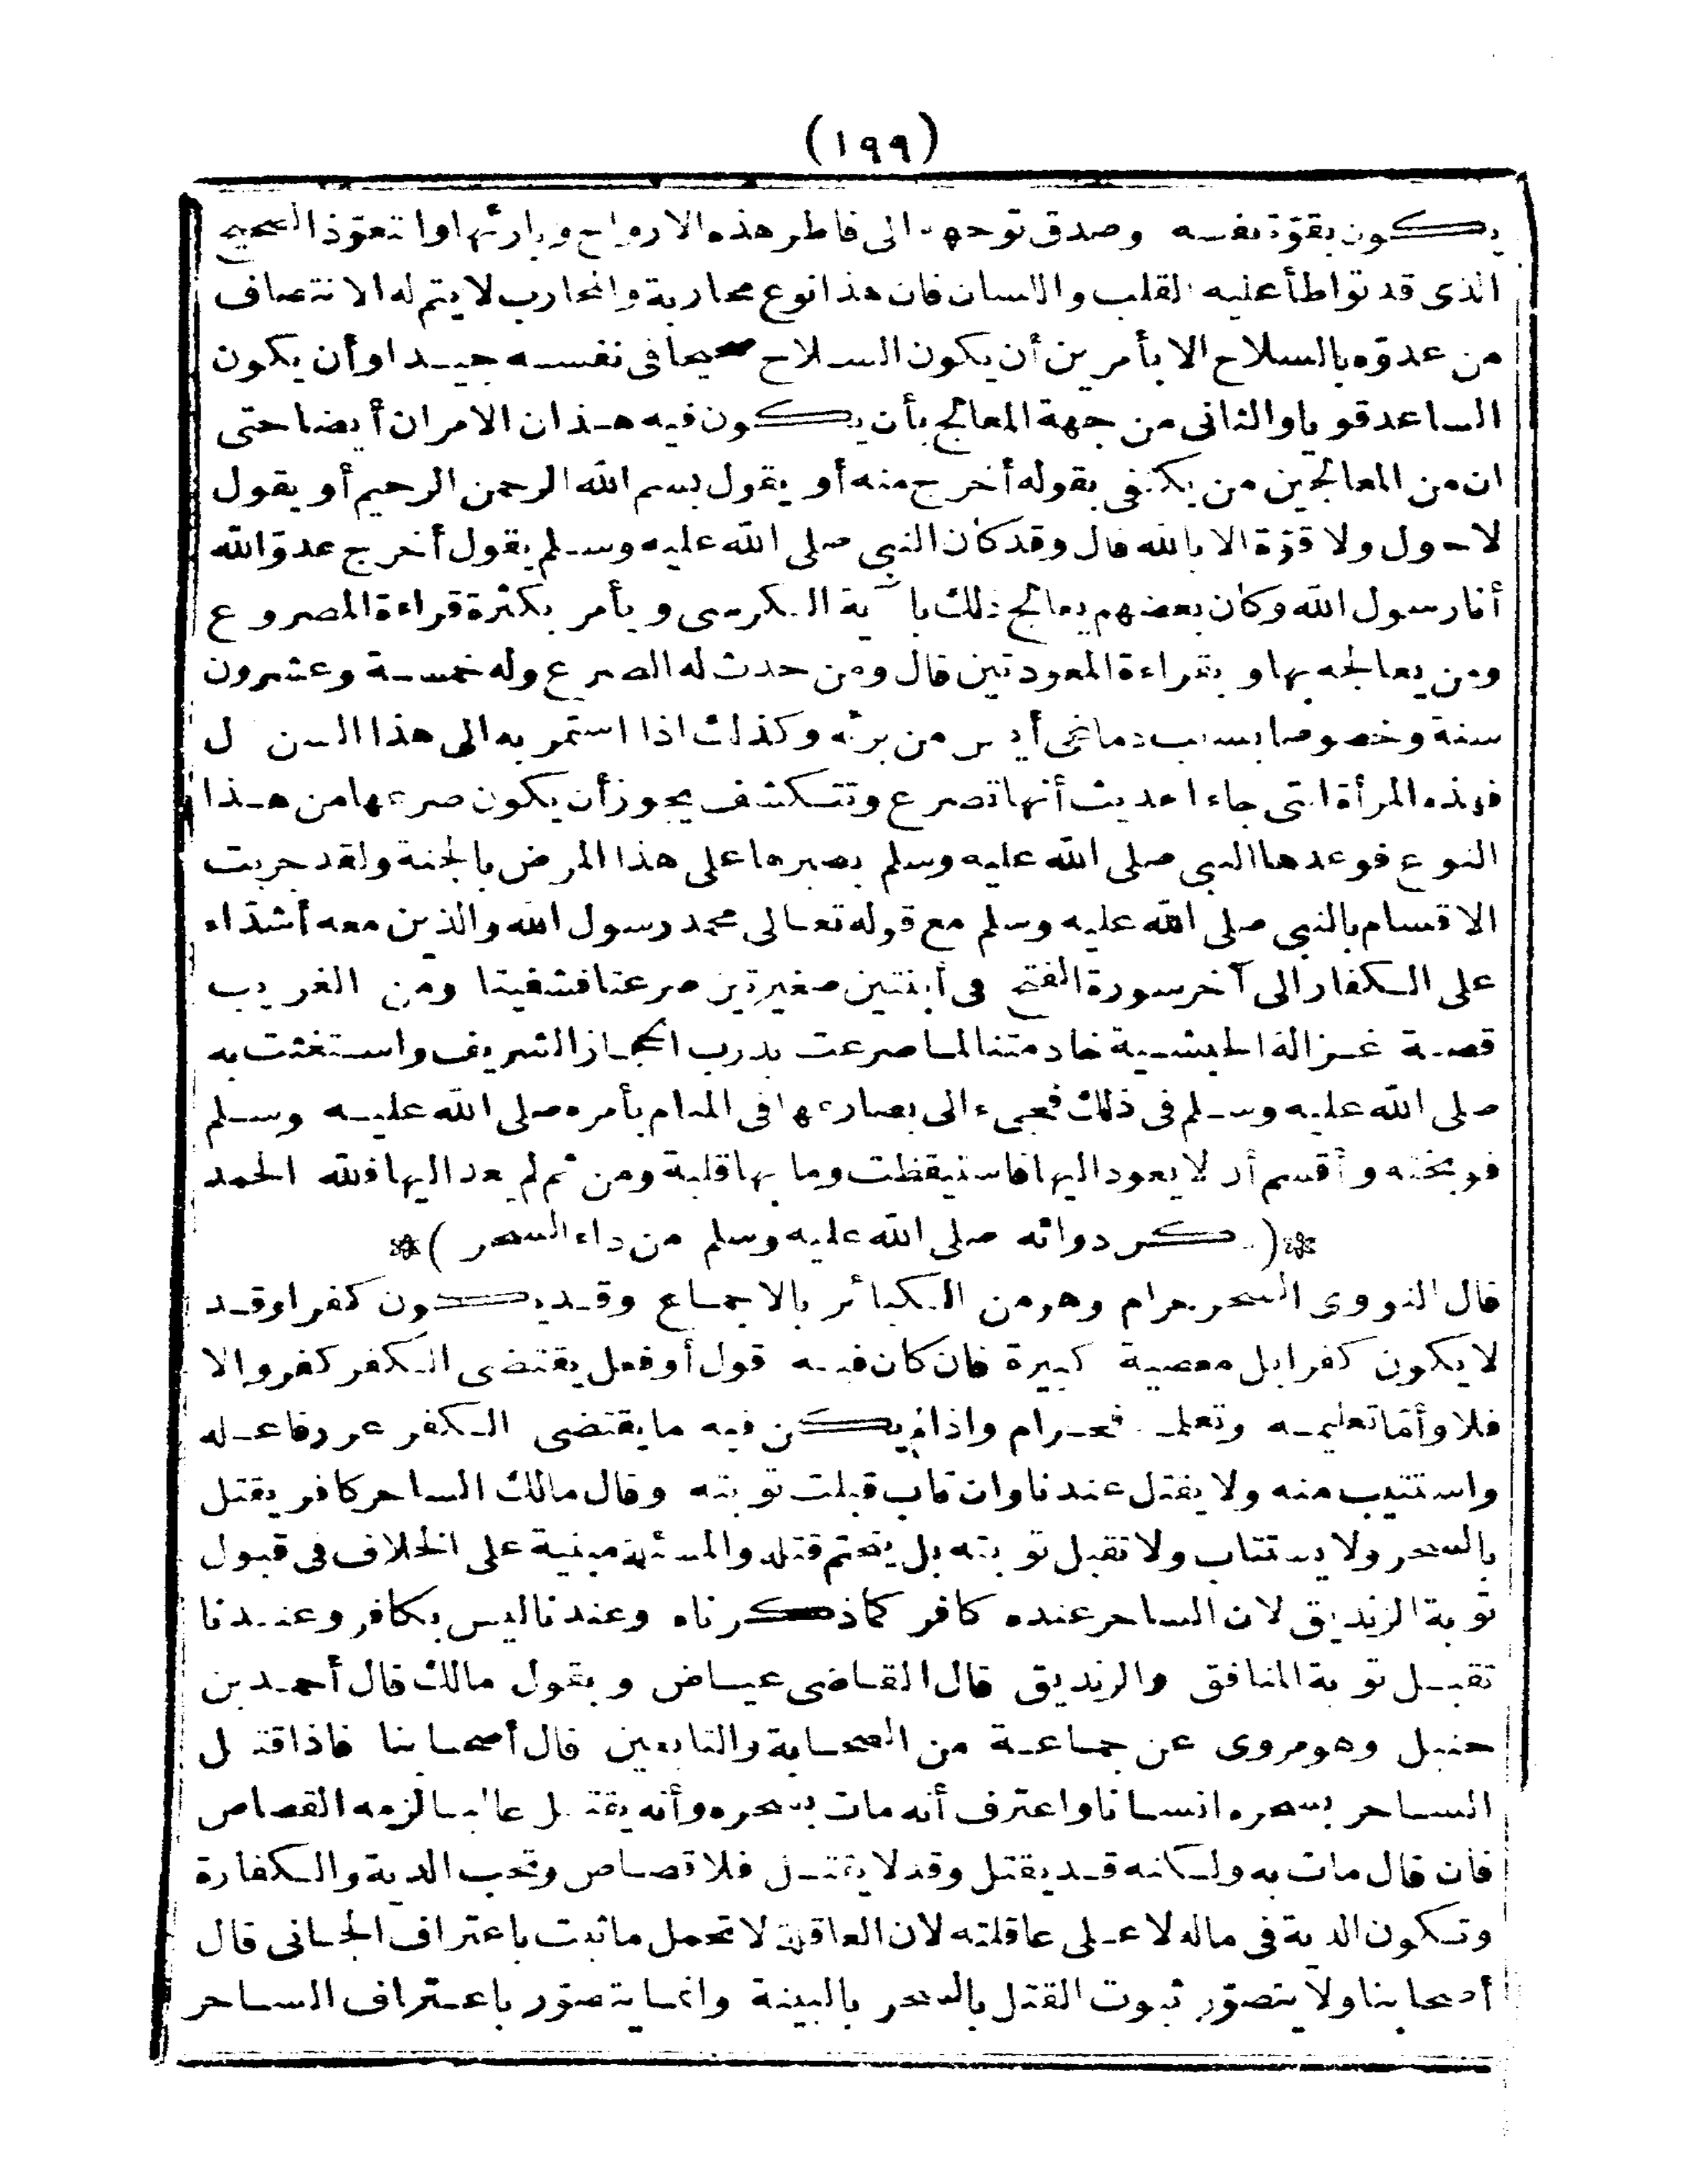 (١٩٩)
يكون بقوة نفسه وصدق توجهه الى فاطر هذه الارواح وبارئها والتعوّذ الصحيح
الذى قد تواطأ عليه القلب واللسان فان هذا نوع محاربة والمحارب لا يتم له الانتصاف
من عدوّه بالسلاح الا بأمرين أن يكون السلاح صحيحا فى نفسه جيدا وأن يكون
الساعد قويا والثانى من جهة المعالج بأن يكون فيه هذان الامران أيضا حتى
ان من المعالجين من يكتفى بقوله أخرج منه أو يقول بسم الله الرحمن الرحيم أو يقول
لا حول ولا قوّة الا بالله قال وقد كان النبى صلى الله عليه وسلم يقول أخرج عدوّ الله
أنا رسول الله وكان بعضهم يعالج ذلك بآية الكرسى ويأمر بكثرة قراءة المصروع
ومن يعالجه بها وبقراءة المعودتين قال ومن حدث له الصرع وله خمسة وعشرون
سنة وخصوصا بسبب دماغى أيس من برئه وكذلك اذا استمر به الى هذا السن قال
فهذه المرأة التى جاء الحديث أنها تصرع وتتكشف يجوز أن يكون صرعها من هذا
النوع فوعدها النبى صلى الله عليه وسلم بصبرها على هذا المرض بالجنة ولقد جربت
الاقسام بالنبى صلى الله عليه وسلم مع قوله تعالى محمد رسول الله والذين معه أشدّاء
على الكفار الى آخر سورة الفتح فى ابنتين صغيرتين صرعتا فشفيتا ومن الغريب
قصة غزالة الحبشية خادمتنا لما صرعت بدرب الحجاز الشريف واستغثت به
صلى الله عليه وسلم فى ذلك فجىء الى بصارعها فى المنام بأمره صلى الله عليه وسلم
فوبخته وأقسم أن لا يعود اليها فاستيقظت وما بها قلبة ومن ثم لم يعد اليها فلله الحمد
*(ذكر دوائه صلى الله عليه وسلم من داء السحر)*
قال النووى السحر حرام وهو من الكبائر بالاجماع وقد يكون كفرا وقد
لا يكون كفرا بل معصية كبيرة فان كان فيه قول أو فعل يقتضى الكفر كفر والا
فلا وأمّا تعليمه وتعلمه فحرام واذا لم يكن فيه ما يقتضى الكفر عزر فاعله
واستتيب منه ولا يقتل عندنا وان تاب قبلت توبته وقال مالك الساحر كافر يقتل
بالسحر ولا يستتاب ولا تقبل توبته بل يتحتم قتله والمسئلة مبنية على الخلاف فى قبول
توبة الزنديق لان الساحر عنده كافر كما ذكرناه وعندنا ليس بكافر وعندنا
تقبل توبة المنافق والزنديق قال القاضى عياض وبقول مالك قال أحمد بن
حنبل وهو مروى عن جماعة من الصحابة والتابعين قال أصحابنا فاذا قتل
الساحر بسحره انسانا واعترف أنه مات بسحره وأنه يقتل غالبا لزمه القصاص
فان قال مات به ولكنه قد يقتل وقد لا يقتل فلا قصاص وتجب الدية والكفارة
وتكون الدية فى ماله لا على عاقلته لان العاقلة لا تحمل ما ثبت باعتراف الجانى قال
أصحابنا ولا يتصوّر ثبوت القتل بالسحر بالبينة وانما يتصوّر باعتراف الساحر